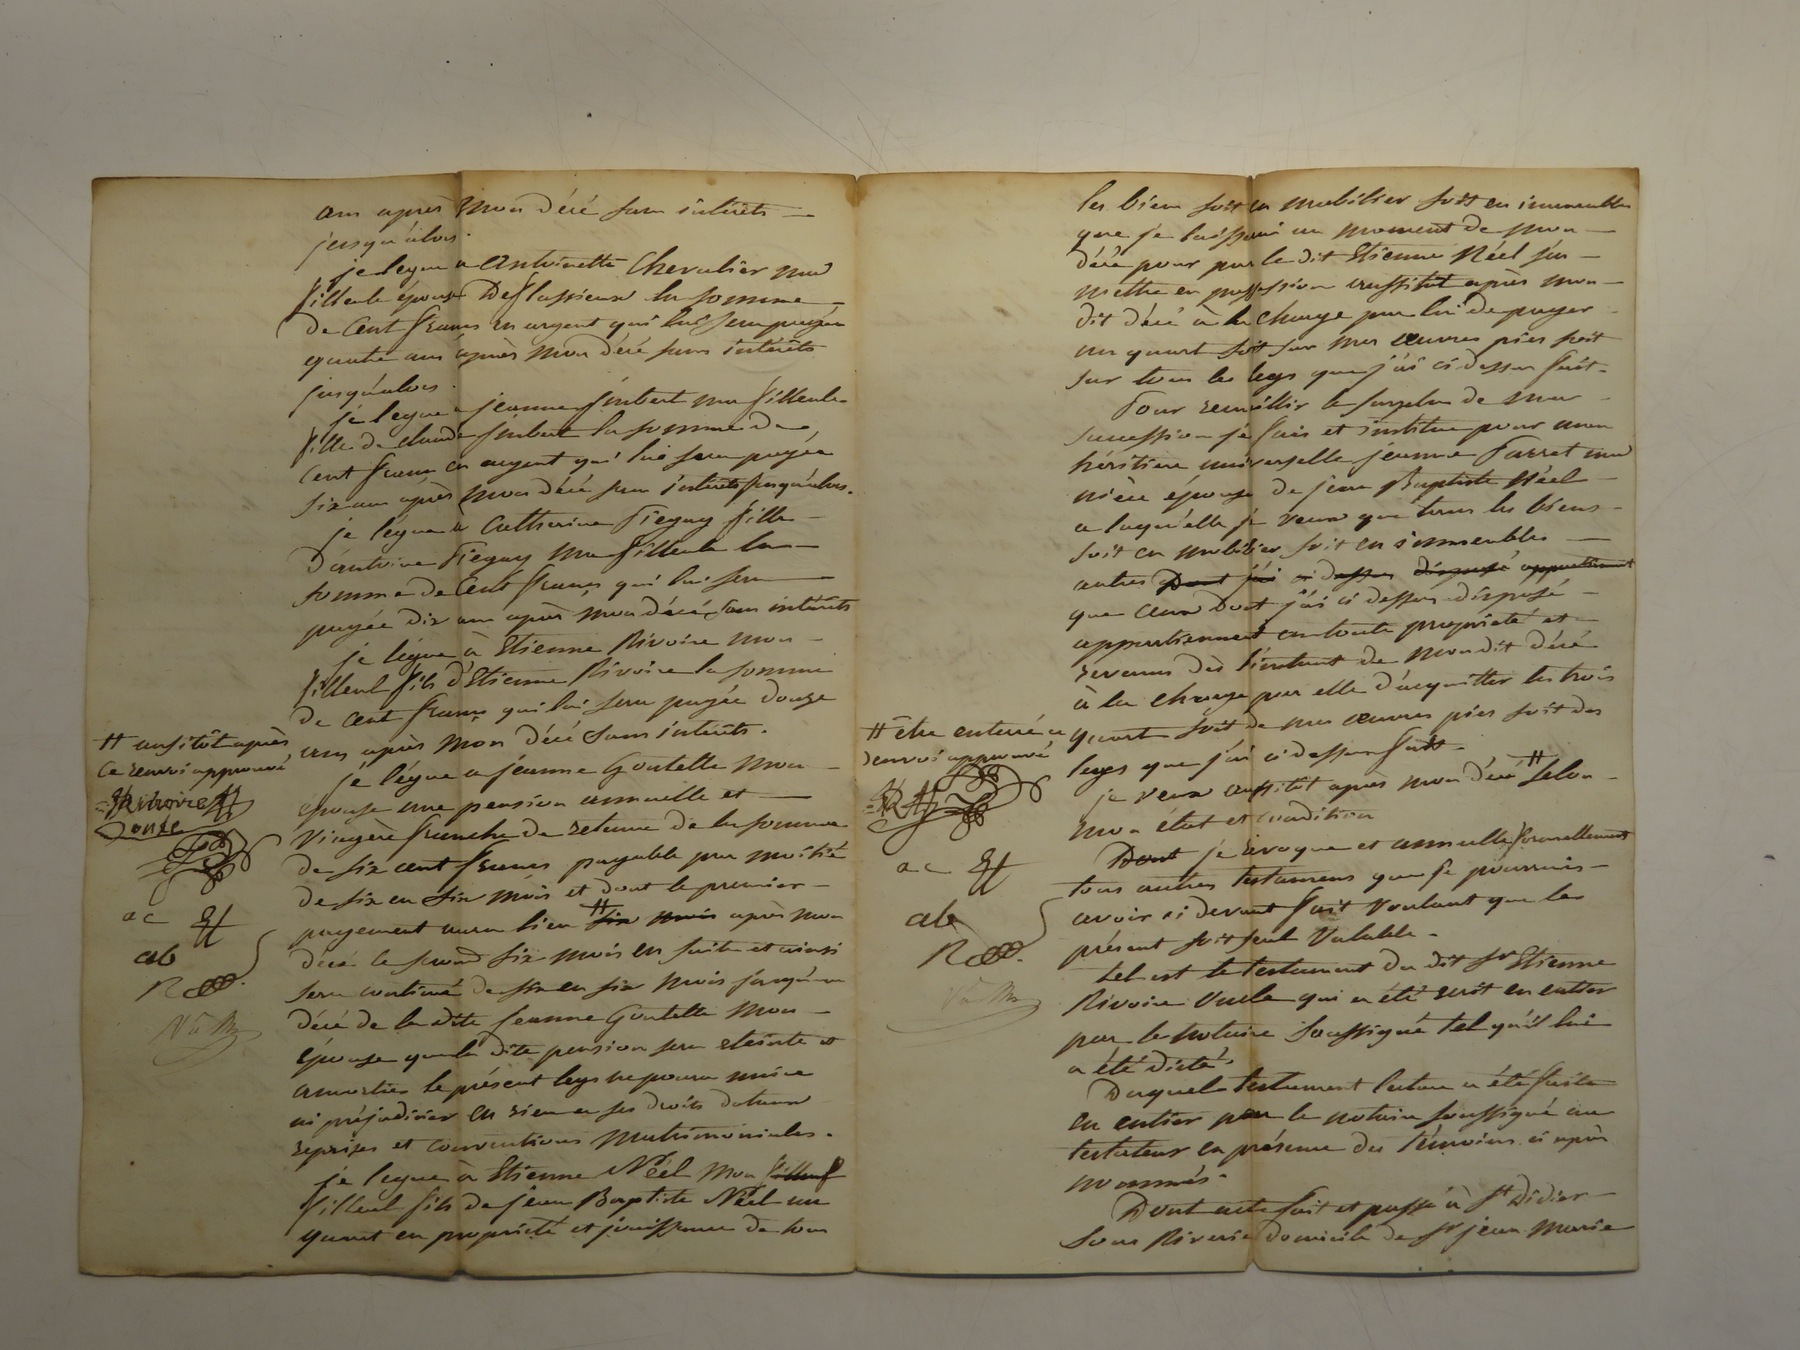 ans après mon décé sans intérêts
jusqu'alors.
je legue a Antoinette Chevalier ma
filleule épouse Deflassieux la somme
de Cent francs en argent qui lui sera payée
quatre ans après mon décé sans intérêts
jusqu'alors.
je legue a jeanne jmbert ma filleule
fille de claude jmbert la somme de
Cent francs en argent qui lui sera payée
six ans après mon décé sans intérêts jusqu'alors.
je legue à Catherine Piegay fille
d'antoine Piegay ma filleule la
somme de Cent francs qui lui sera
payée dix ans après mon décé sans intérêts
je legue à Etienne Rivoire mon
filleul fils d'Etienne Rivoire la somme
de cent francs qui lui sera payée douze
ans après mon décé sans intérêts.
je legue a jeanne Goutelle mon
épouse une pension annuelle et
viagère franche de retenue de la somme
de six cent francs payable par moitié
de six en six mois et dont le premier
payement aura lieu # six mois après mon
décé le second six mois en suite et ainsi
sera continué de six en six mois jusqu'au
décé de la dite jeanne Goutelle mon
épouse que la dite pension sera éteinte et
amortie le présent legs ne poura nuire
ni préjudicier en rien a ses droits dotaux
reprises et conventions matrimoniales.
je legue à Etienne Néel mon filleul
filleul fils de jean Baptiste Néel un
quart en propriété et jouissance de tous
# aussitôt après
Ce renvoi approuvé
Rivoire
Donte
ac
ab
R
les biens soit en mobilier soit en immeubles
que je laisserai au moment de mon
décé pour par le dit Etienne Néel s'en
mettre en possession aussitôt après mon
dit décé à la charge par lui de payer
un quart soit sur mes œuvres pies soit
sur tous les legs que j'ai ci dessus fait.
Pour recueillir le surplus de ma
succession je fais et institue pour mon
héritière universelle jeanne Parret ma
nièce épouse de jean Baptiste Néel
a laquelle je veux que tous les biens
soit en mobilier soit en immeubles
autres Dont j'ai ci dessus disposé appartiennent
que ceux Dont j'ai ci dessus disposé
appartiennent en toute propriété et
revenus dès l'instant de mon dit décé
à la charge par elle d'acquitter les trois
quart soit de mes œuvres pies soit des
legs que j'ai ci dessus fait.
je veux aussitôt après mon décé # selon
mon état et condition
Dont je revoque et annulle formellement
tous autres testamens que je pourrais
avoir ci devant fait voulant que le
présent soit seul valable.
tel est le testament du dit Sr Etienne
Rivoire qui a été écrit en entier
par le notaire soussigné tel qu'il lui
a été dicté.
Duquel testament lecture a été faite
en entier par le notaire soussigné au
testateur en présence des témoins ci après
nommés.
Dont acte fait et passé à St Didier
sous Riverie domicile de Sr jean Marie
# être enterré ce
renvoi approuvé
ac
ab
R